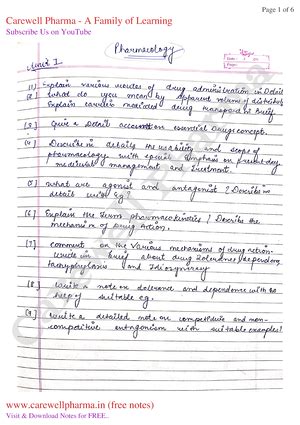 Carewell Pharma - A Family of Learning
Page 1 of 6
Subscribe Us on YouTube
Pharmacology
Unit I
[1] Explain various routes of drug administration in Detail
[2] What do you mean by Apparent volume of distribution
Explain carrier mediated drug transport in brief
[3] Give a Detail account on essential Drugs concept.
[4] Describe in details the and scope of
pharmacology with special emphasis on
management and treatment.
[5] What are agonist and antagonist? Describe in
detail with Eg?
[6] Explain the term pharmacokinetics? Describe the
mechanism of Drug Action.
[7] Comment on the Various mechanisms of drug action.
write in brief about drug tolerance, dependence,
tachyphylaxis and Idiosyncracy
[8] Write a note on tolerance and dependence with the
help of suitable eg.
[9] Write a detailed note on competitive and non-
competitive antagonism with suitable examples?
www.carewellpharma.in (free notes)
Visit & Download Notes for FREE..